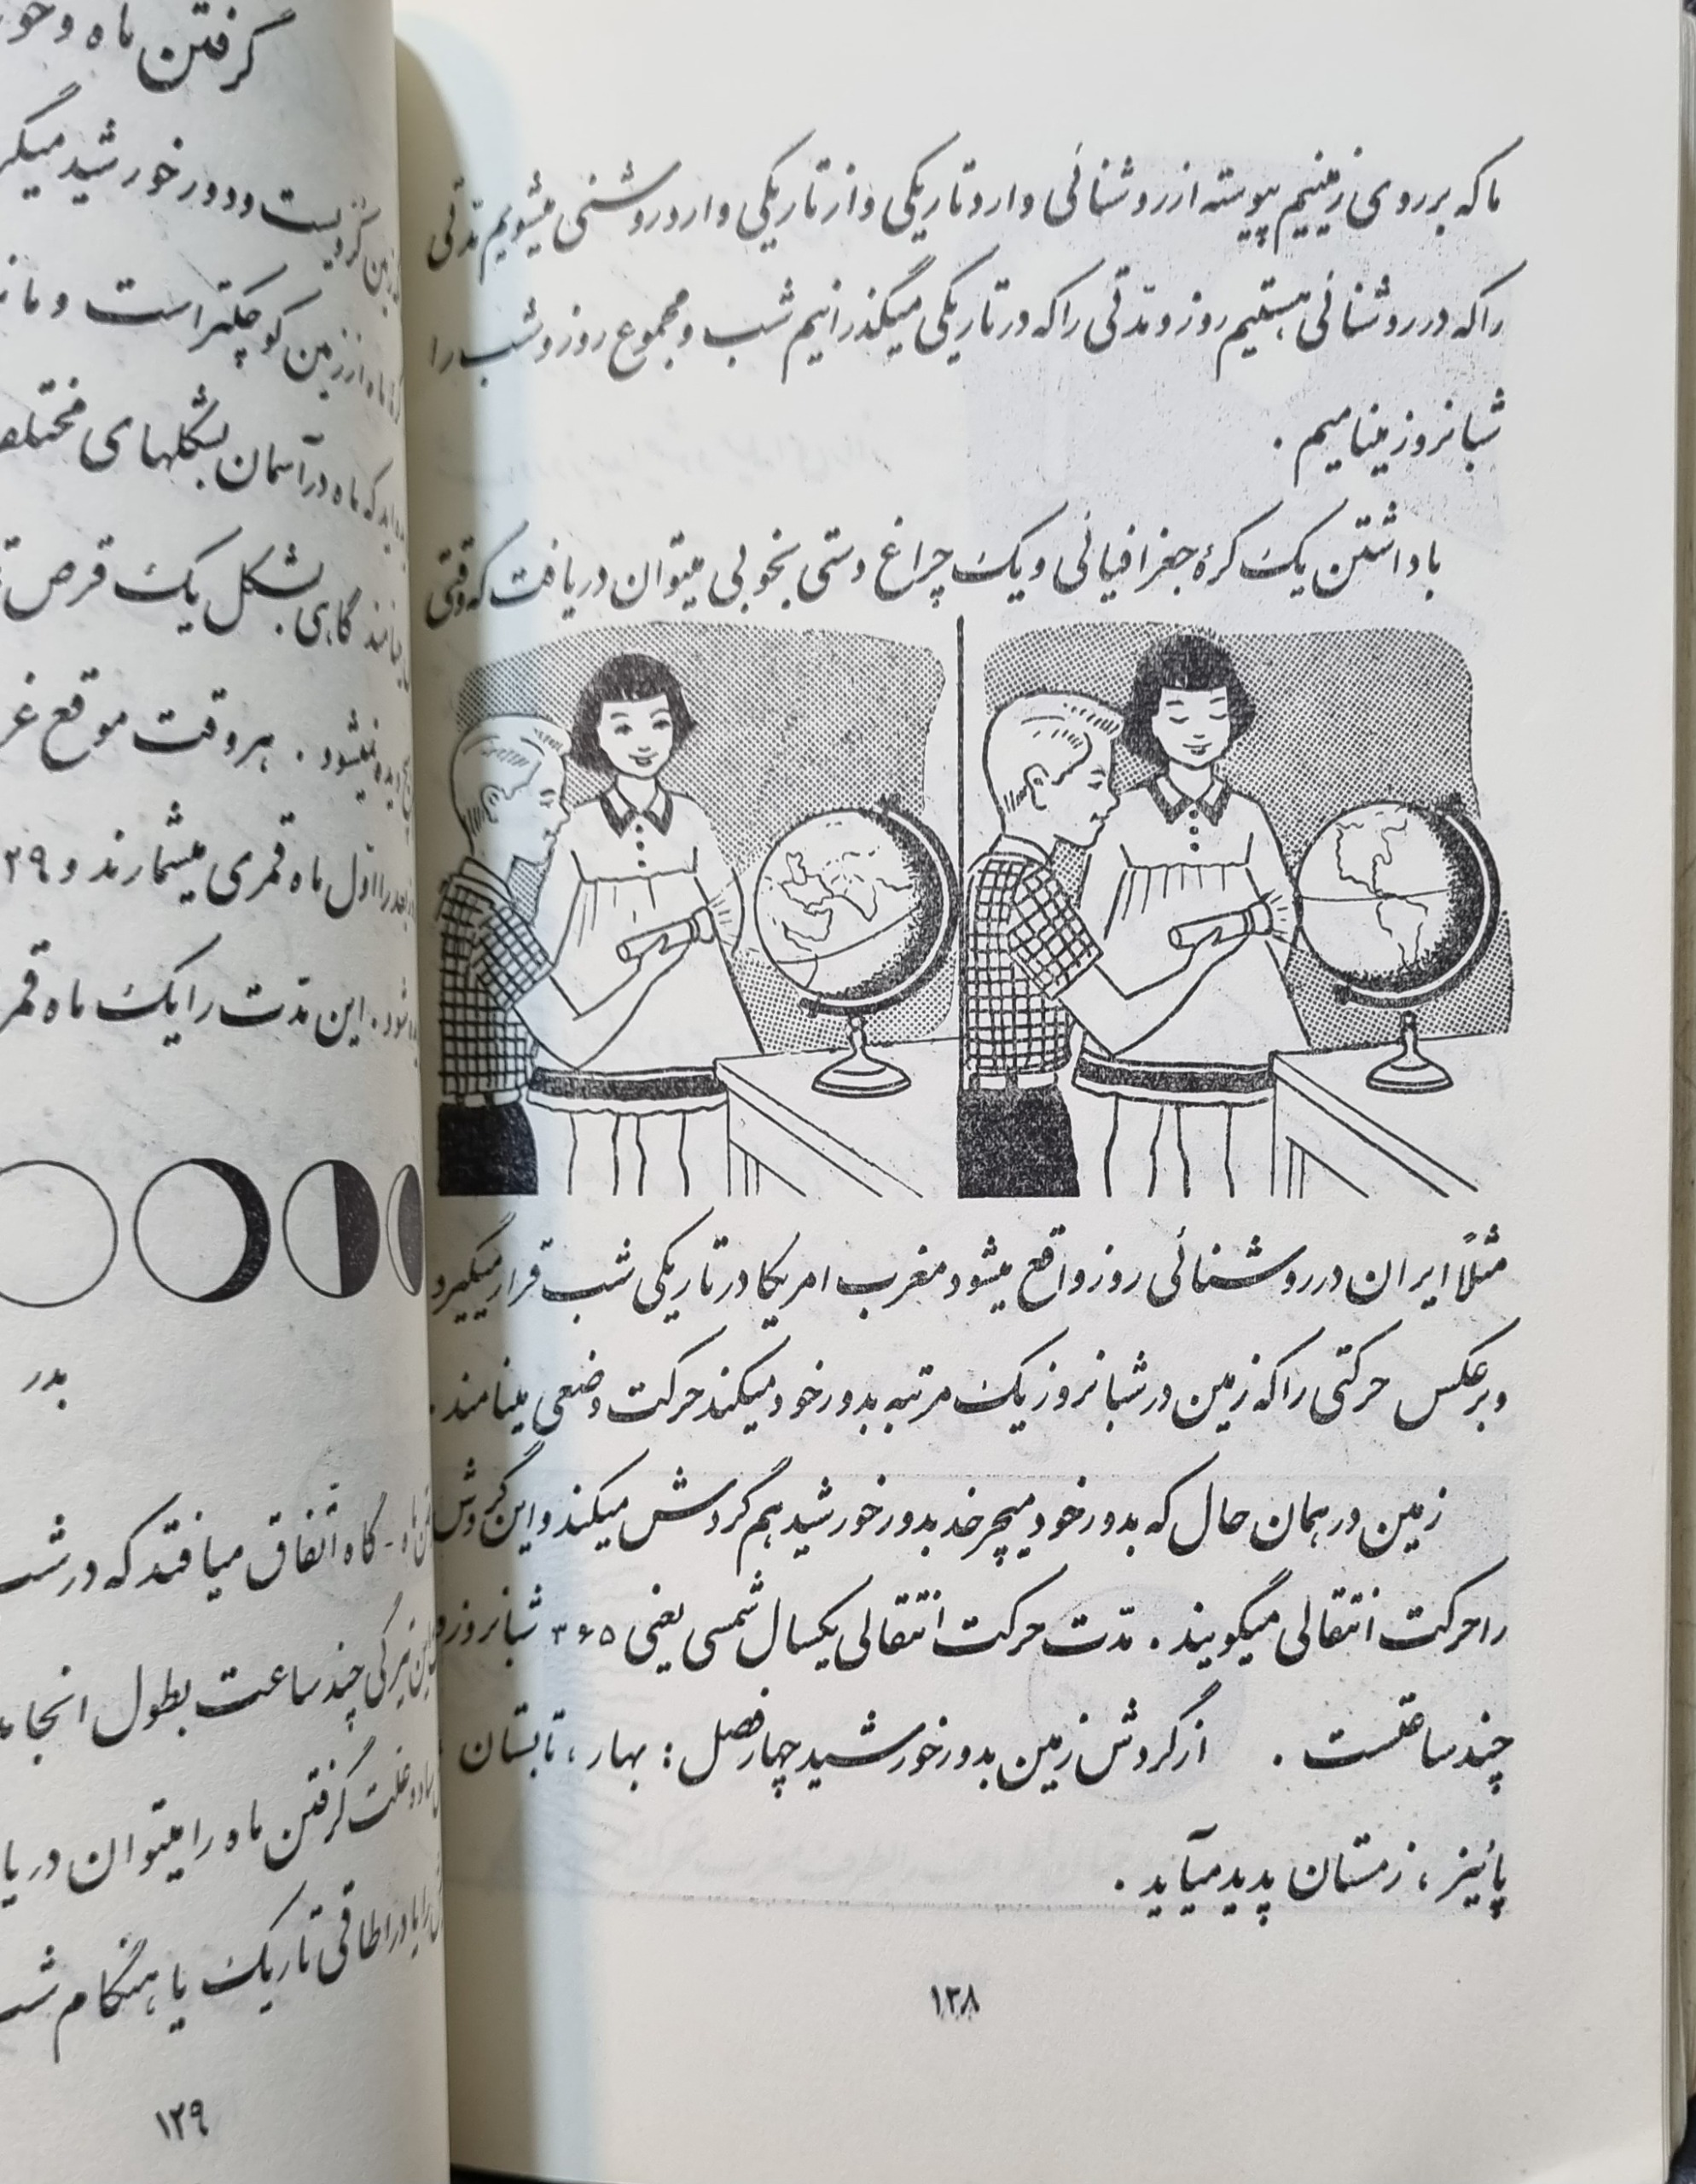 ما که بر روی زمینیم پیوسته از روشنائی وارد تاریکی و از تاریکی وارد روشنی میشویم مدّتی
را که در روشنائی هستیم روز و مدّتی را که در تاریکی میگذرانیم شب و مجموع روز و شب را
شبانروز مینامیم .
با داشتن یک کرهٔ جغرافیائی و یک چراغ دستی بخوبی میتوان دریافت که وقتی
مثلاً ایران در روشنائی روز واقع میشود مغرب امریکا در تاریکی شب قرار میگیرد
و برعکس حرکتی را که زمین در شبانروز یک مرتبه بدور خود میکند حرکت وضعی مینامند .
زمین در همان حال که بدور خود میچرخد بدور خورشید هم گردش میکند و این گردش
را حرکت انتقالی میگویند . مدّت حرکت انتقالی یکسال شمسی یعنی ۳۶۵ شبانروز و
چند ساعتست . از گردش زمین بدور خورشید چهار فصل : بهار ، تابستان
پائیز ، زمستان پدید میآید .
۱۲۸
گرفتن ماه و
ودور خورشید
ماه از زمین کوچکتر است و
که ماه در آسمان بشکلهای
گاهی بشکل یک قرص
دیده نمیشود . هر وقت موقع
را اوّل ماه قمری میشمارند و ۲۹
این مدّت را یک ماه
بدر
- گاه اتّفاق میافتد که در
چند ساعت بطول
علت گرفتن ماه را میتوان
در اطاقی تاریک یا هنگام
۱۲۹